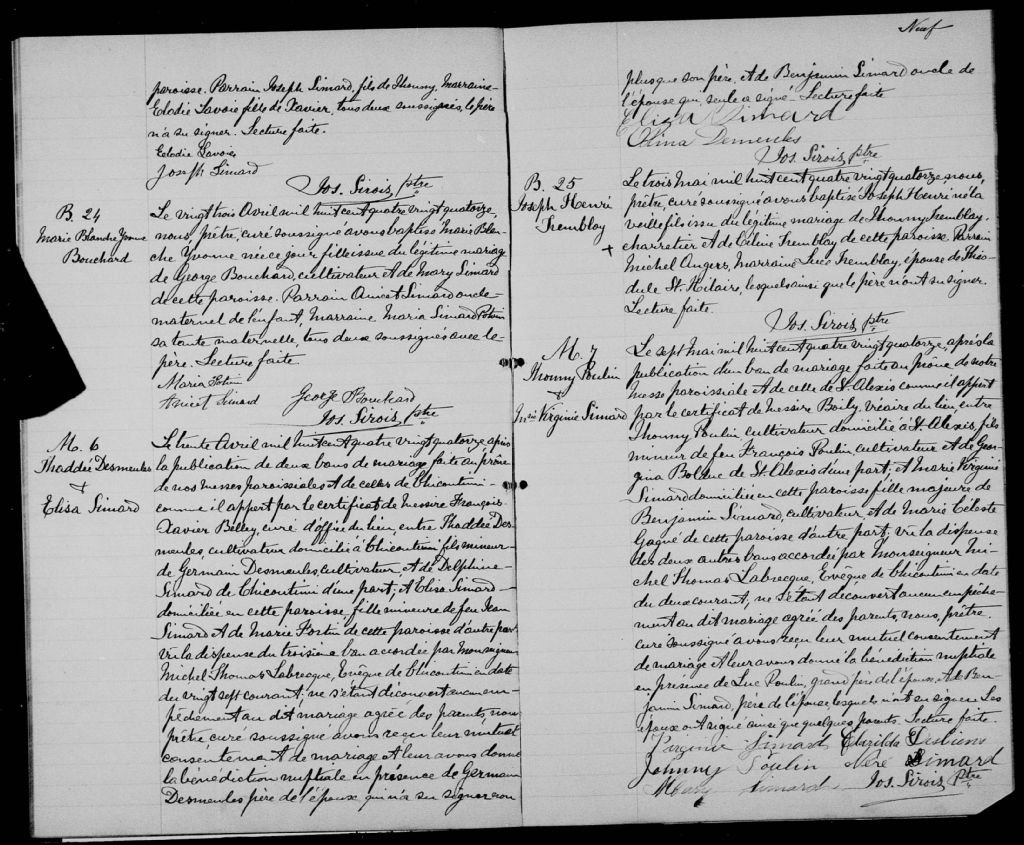 paroisse. Parrain Joseph Simard, fils de Thonny, Marraine
Elodie Savoie fille de Xavier, tous deux soussignés, le père
n'a su signer. Lecture faite.
Elodie Savoie
Joseph Simard
Jos. Sirois, ptre
B. 24
Marie Blanche Yvonne
Bouchard
Le vingt trois Avril mil huit cent quatre vingt quatorze,
nous, prêtre, curé soussigné avons baptisé Marie Blan-
che Yvonne née ce jour fille issue du légitime mariage
de George Bouchard, cultivateur et de Mary Simard
de cette paroisse. Parrain Anicet Simard oncle
maternel de l'enfant, Marraine Maria Simard Potvin
sa tante maternelle, tous deux soussignés avec le
père. Lecture faite.
Maria Potvin
Anicet Simard George Bouchard
Jos. Sirois, ptre
M. 6
Thaddée Desmeules
&
Elisa Simard
Le trente Avril mil huit cent quatre vingt quatorze après
la publication de deux bans de mariage faite au prône
de nos messes paroissiales et de celles de Chicoutimi
comme il appert par le certificat de messire François-
Xavier Belley, curé d'office du lieu, entre Thaddée Des-
meules, cultivateur domicilié à Chicoutimi fils mineur
de Germain Desmeules, cultivateur et de Delphine
Simard de Chicoutimi d'une part; et Elisa Simard
domiciliée en cette paroisse, fille mineure de feu Jean
Simard et de Marie Fortin de cette paroisse d'autre part
vu la dispense du troisième ban accordée par Monseigneur
Michel Thomas Labrecque, Evêque de Chicoutimi en date
du vingt sept courant; ne s'étant découvert aucun em-
pêchement au dit mariage agréé des parents, nous
prêtre, curé soussigné avons reçu leur mutuel
consentement de mariage et leur avons donné
la bénédiction nuptiale en présence de Germain
Desmeules père de l'époux qui n'a su signer non
Neuf
plus que son père, et de Benjamin Simard oncle de
l'épouse qui, seule a signé. Lecture faite
Elisa Simard
Olina Demeules
Jos. Sirois, ptre
B. 25
Joseph Henri
Tremblay
+
Le trois Mai mil huit cent quatre vingt quatorze, nous,
prêtre, curé soussigné avons baptisé Joseph Henri né la
veille fils issu du légitime mariage de Thonny Tremblay
charretier et de Céline Tremblay de cette paroisse. Parrain
Michel Angers, Marraine Luce Tremblay, épouse de Théo-
dule St. Hilaire, lesquels ainsi que le père n'ont su signer.
Lecture faite.
Jos. Sirois, ptre
M. 7
Thonny Poulin
&
Mie Virginie Simard
Le sept Mai mil huit cent quatre vingt quatorze, après la
publication d'un ban de mariage faite au prône de notre
messe paroissiale et de celle de St Alexis comme il appert
par le certificat de messire Boily, vicaire du lieu, entre
Thonny Poulin, cultivateur domicilié à St. Alexis, fils
mineur de feu François Poulin, cultivateur et de Geor-
gina Bolduc de St. Alexis d'une part; et Marie Virginie
Simard domiciliée en cette paroisse fille majeure de
Benjamin Simard, cultivateur, et de Marie Céleste
Gagné de cette paroisse d'autre part; vu la dispense
des deux autres bans accordée par Monseigneur Mi-
chel Thomas Labrecque, Evêque de Chicoutimi en date
du deux courant; ne s'étant découvert aucun empêche-
ment au dit mariage agréé des parents, nous, prêtre,
curé soussigné avons reçu leur mutuel consentement
de mariage et leur avons donné la bénédiction nuptiale
en présence de Luc Poulin, grand père de l'épouse, et de Ben-
jamin Simard, père de l'épouse, lesquels n'ont su signer. Les
époux ont signé ainsi que quelques parents. Lecture faite.
Virginie Simard Clorilda
Johnny Poulin Néré Simard
Mary Simard Jos. Sirois, Ptre